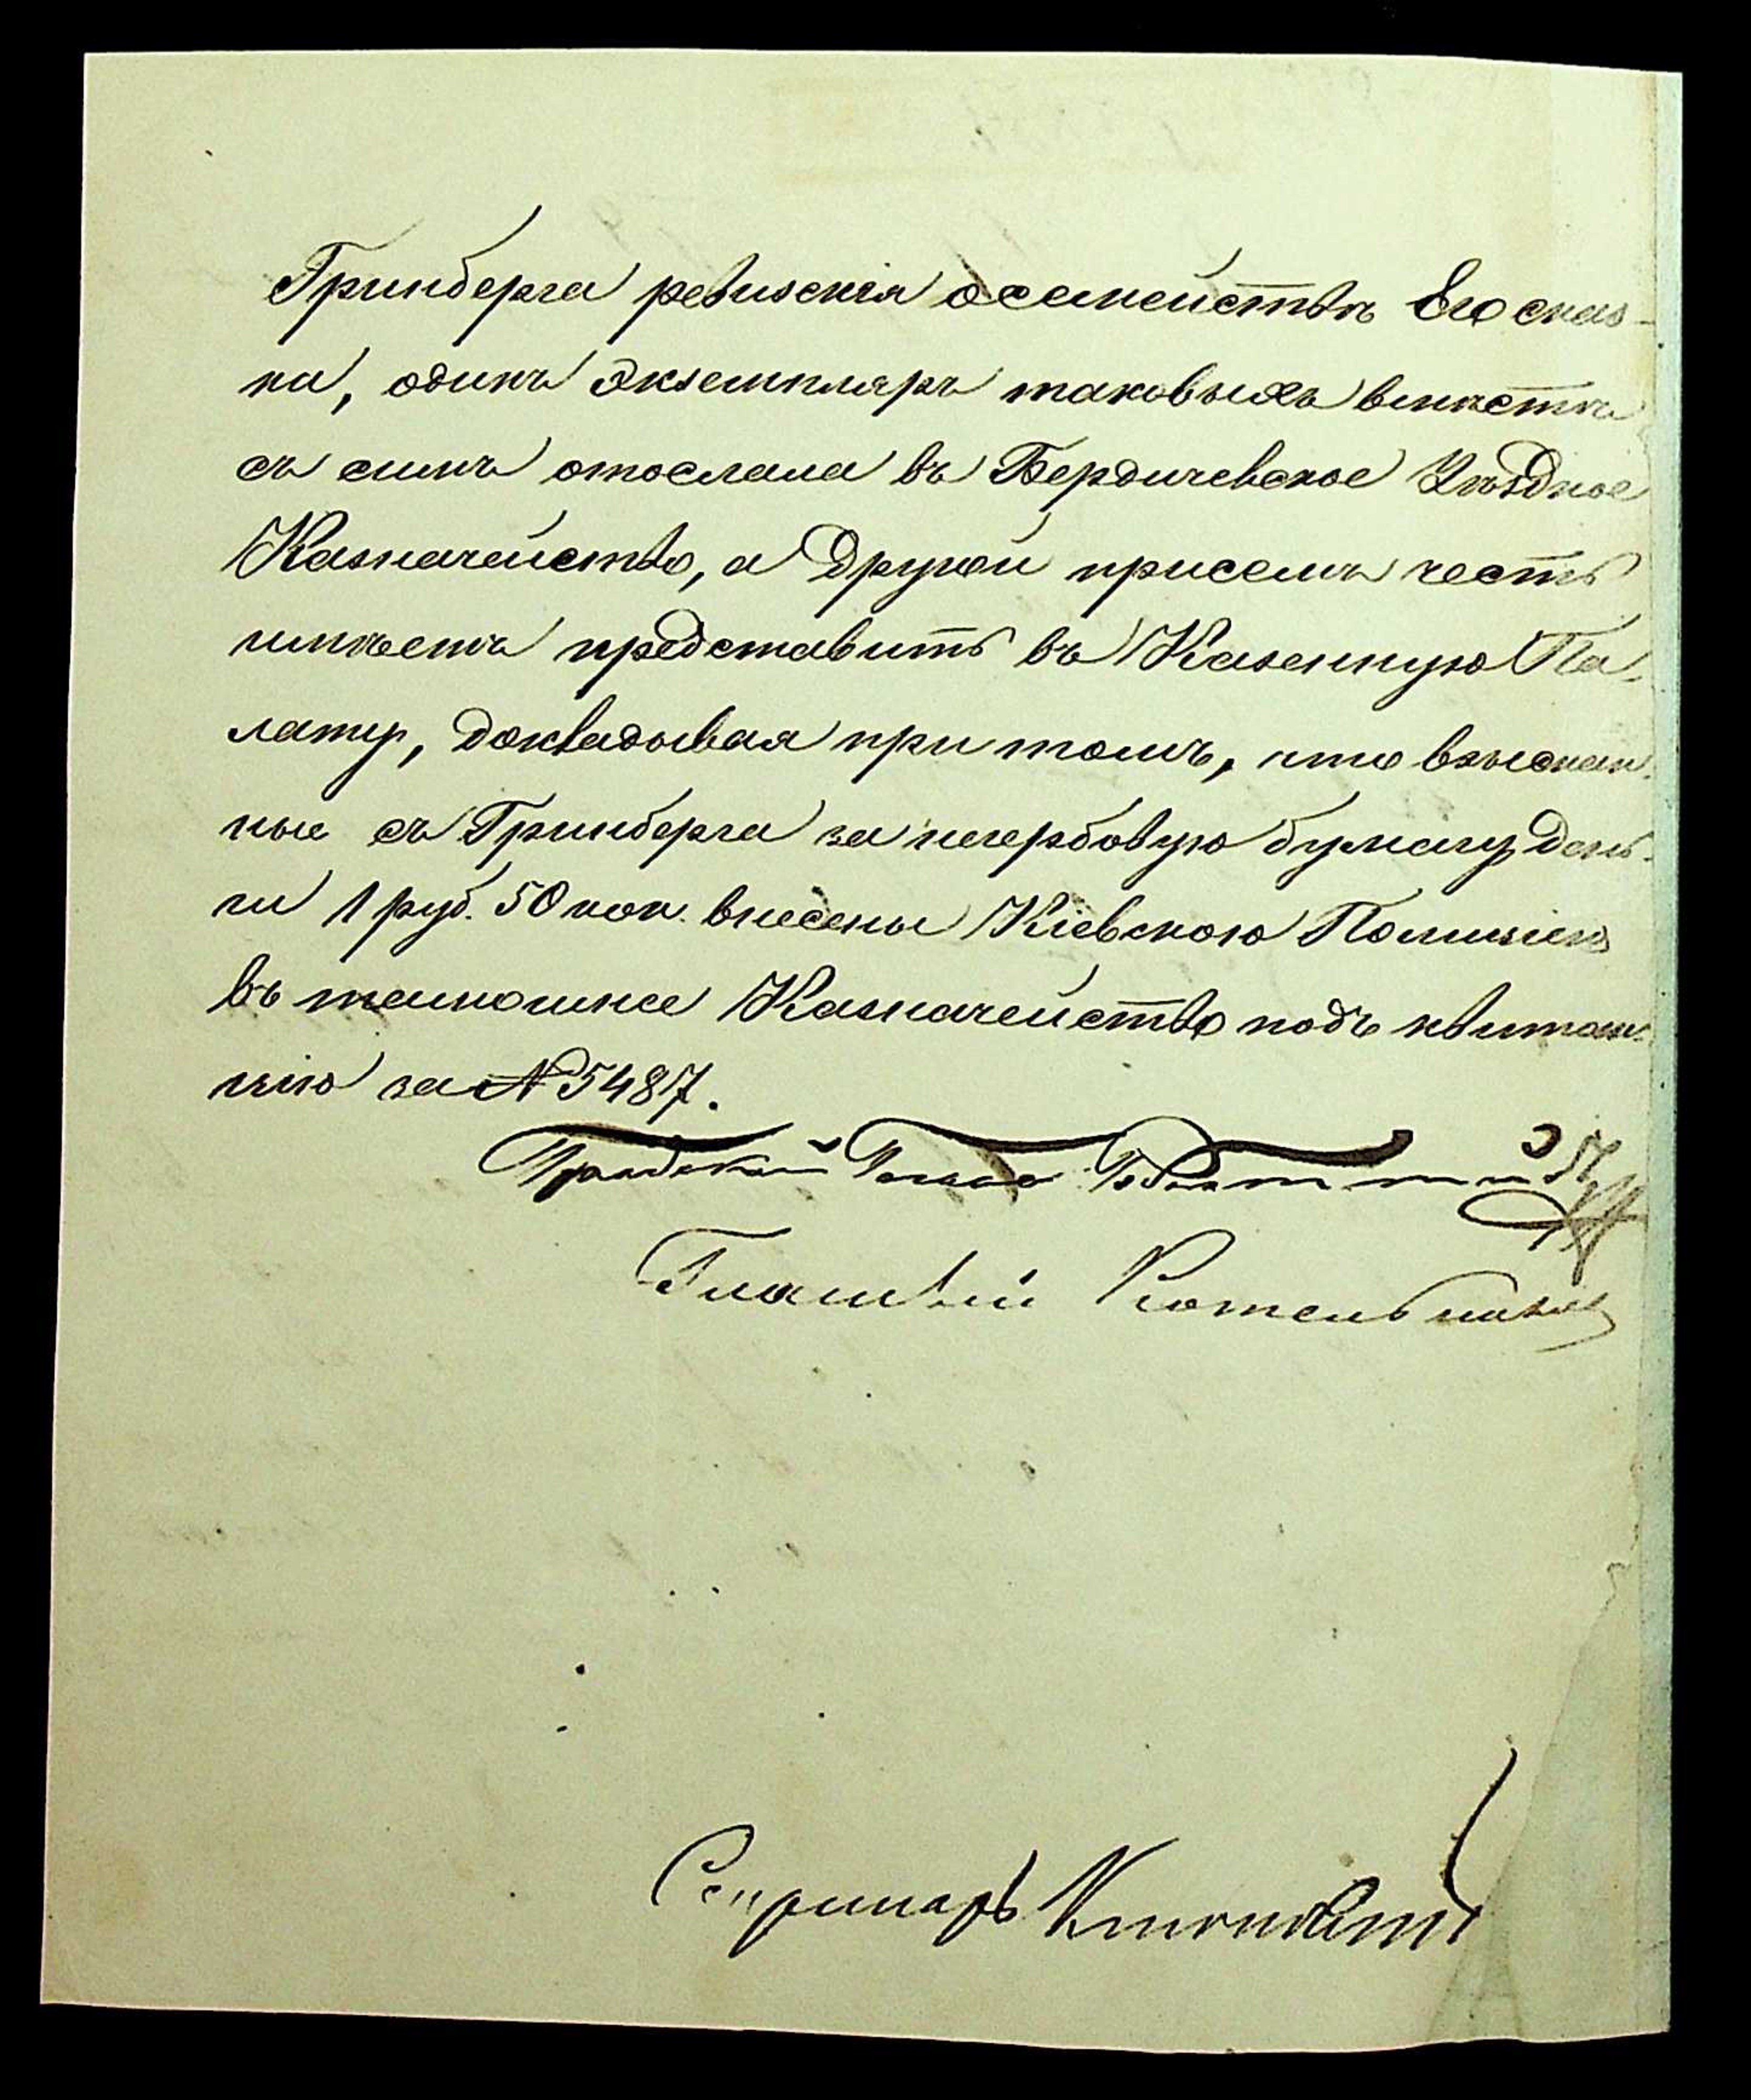 Гринберга ревизскія осемействѣ Его сказ-
ки, одинъ экземпляръ таковыхъ вмѣстѣ
съ симъ отослала въ Бердичевское Уѣздное
Казначейство, а другой присемъ честь
имѣетъ представить въ Казенную Па-
лату, докладывая при томъ, что взыскан-
ные съ Гринберга за негербовую бумагу день-
ги 1 руб. 50 коп. внесены Кіевскою Полиціею
въ тамошнее Казначейство подъ квитан-
цію за № 5487.
Градской Голова
Гласный Котельников
Секретарь